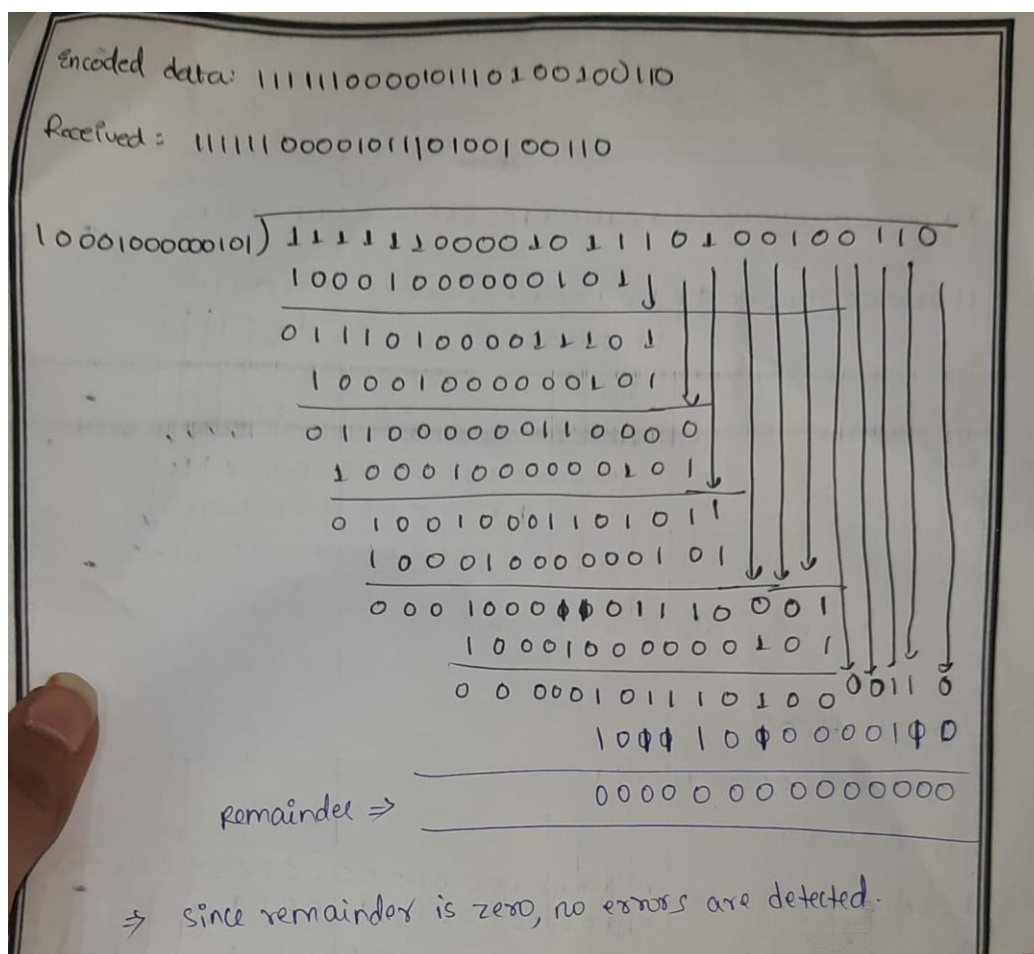 Encoded data: 1111110000101110100100110
Received: 1111110000101110100100110
10001000000101) 1111110000101110100100110
10001000000101
011101000011101
10001000000101
011000000110000
10001000000101
010010001101011
10001000000101
0001000001110001
10001000000101
000001011110100 00110
1000100000100
0000000000000
Remainder ⇒
⇒ Since remainder is zero, no errors are detected.